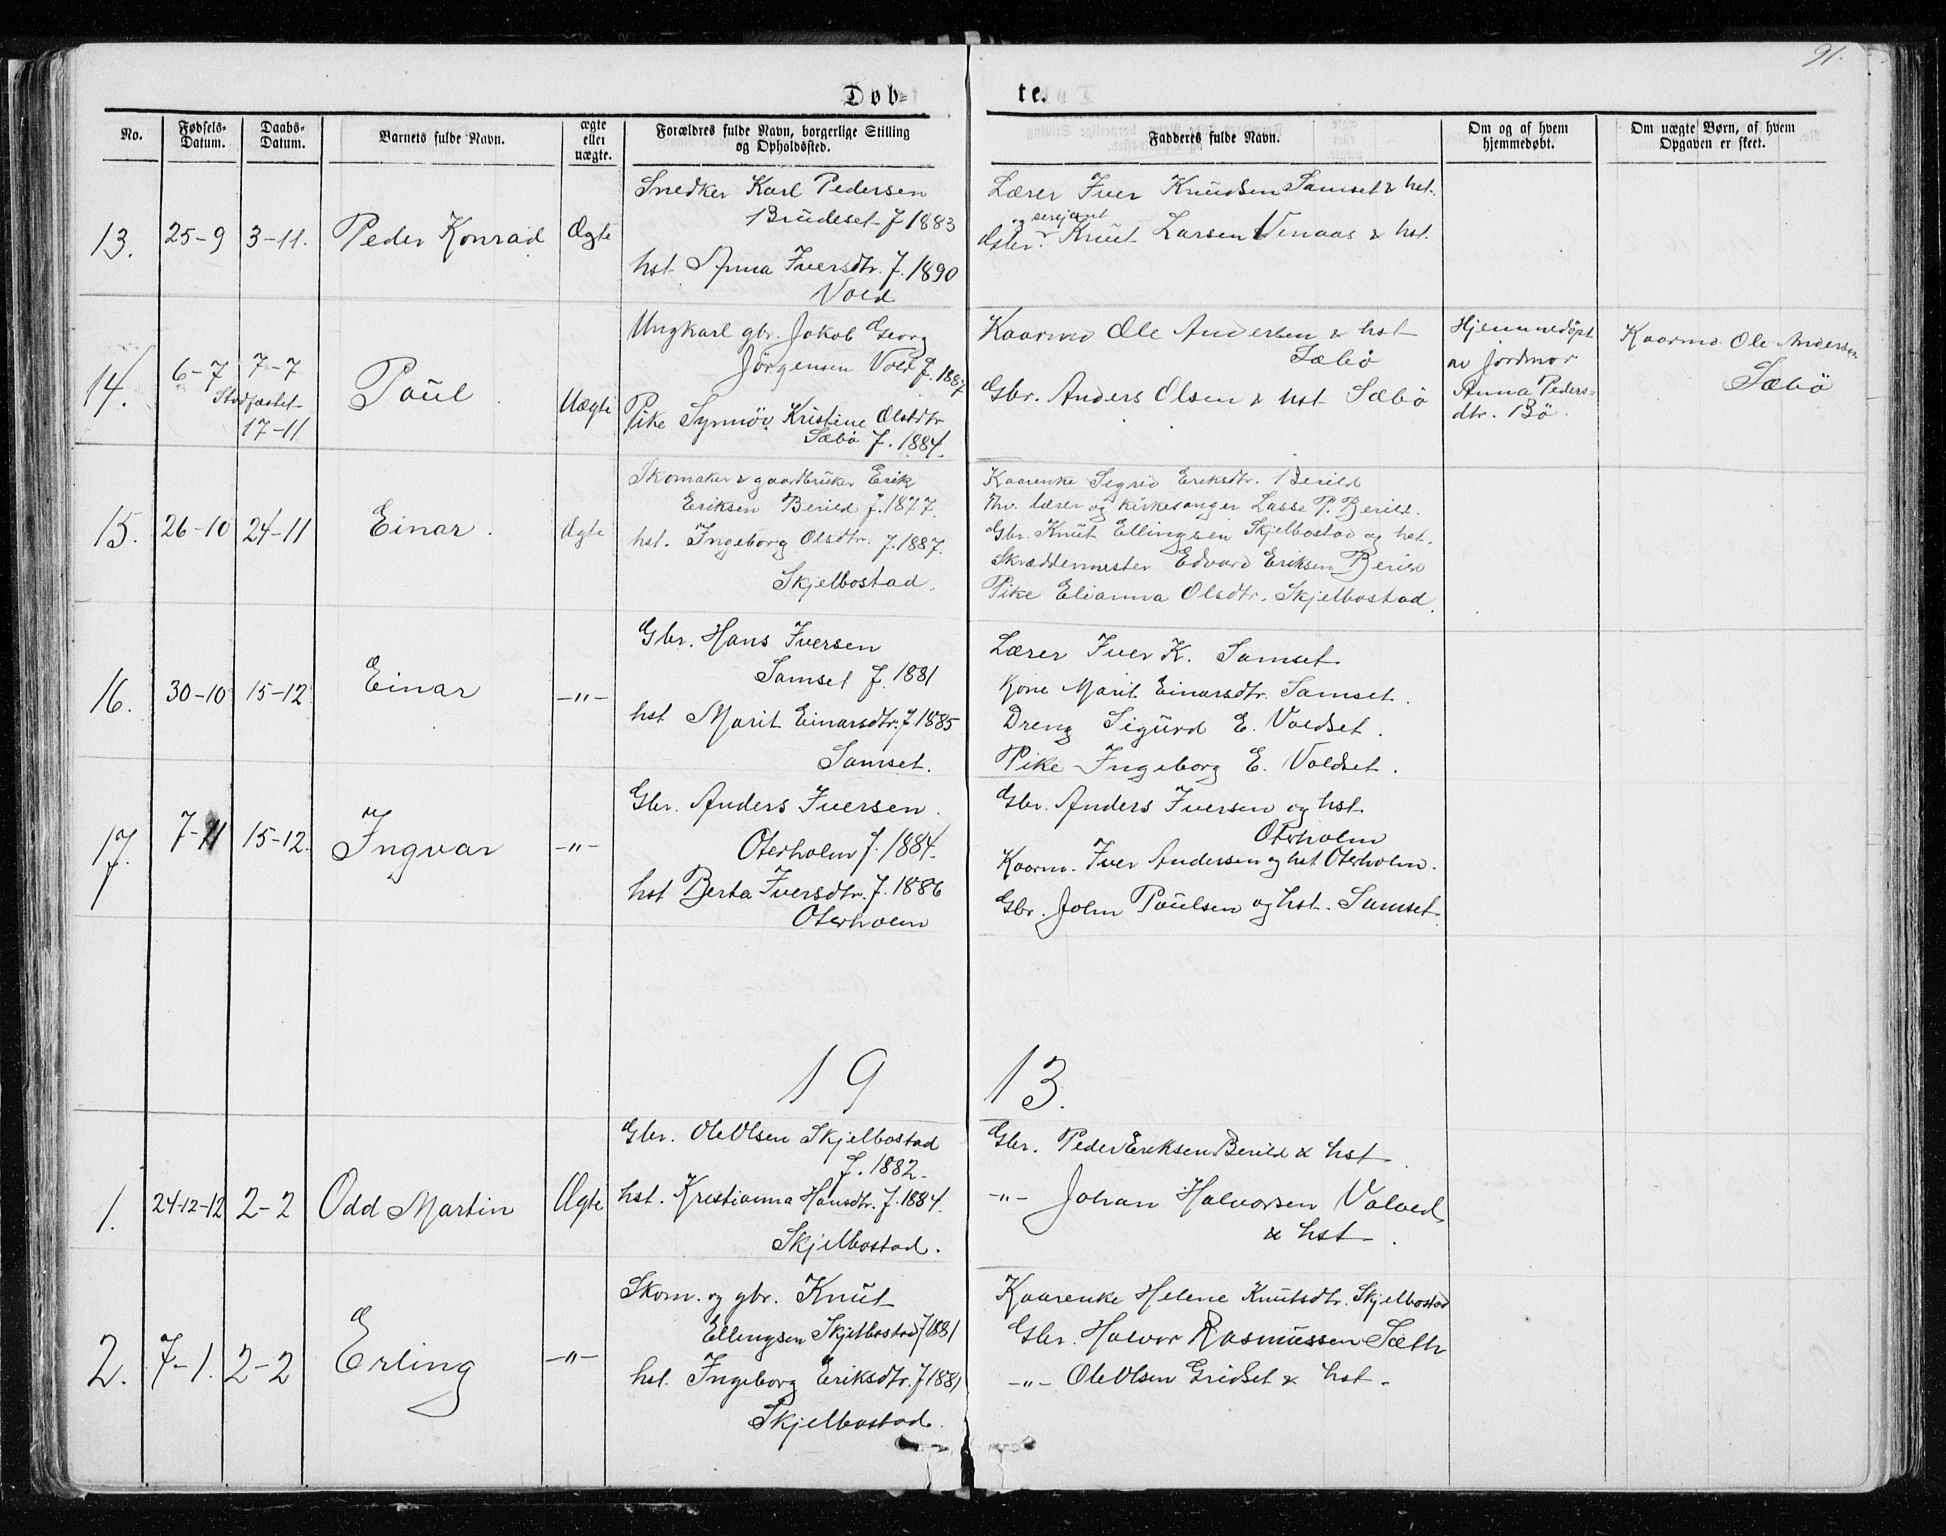 91.
Døb-
te.
No.
Fødsels-
Datum.
Daabs-
Datum.
Barnets fulde Navn.
ægte
eller
uægte.
Forældres fulde Navn, borgerlige Stilling
og Opholdssted.
Fadderes fulde Navn.
Om og af hvem
hjemmedøbt.
Om uægte Børn, af hvem
Opgaven er skeet.
13.
25-9
3-11.
Peder Konrad
Ægte
Snedker Karl Pedersen
Brudeset f 1883
hst. Anna Iversdtr. f. 1890
Vold
Lærer Iver Knudsen Samset & hst.
og serjant
Gbr. Knut Larsen Venaas & hst.
14.
6-7
7-7
Stadfæstet
17-11
Paul
Uægte
Ungkarl gbr. Jakob Georg
Jörgensen Vold f. 1887
Pike Synnöv Kristine Olsdtr
Sæbö f. 1884.
Kaarmd Ole Andersen & hst
Sæbö
Gbr. Anders Olsen & hst Sæbö
Hjemmedöpt
av Jordmor
Anna Peders-
dtr. Bö.
Kaarmd Ole Andersen
Sæbö
15.
26-10
24-11
Einar.
Ægte
Skomaker & gaardbruker Erik
Eriksen Berild f. 1877.
hst. Ingeborg Olsdtr. f. 1887.
Skjelbostad.
Kaarenke Sigrid Eriksdtr. Berild
Fhv. lærer og kirkesanger Lasse P. Berild.
Gbr. Knut Ellingsen Skjelbostad og hst.
Skræddermester Edvard Eriksen Berild
Pike Elianna Olsdtr. Skjelbostad.
16.
30-10
15-12
Einar
-"-
Gbr. Hans Iversen
Samset f. 1881
hst Marit Einarsdtr. f. 1885
Samset.
Lærer Iver K. Samset.
Kone Marit Einarsdtr. Samset.
Dreng Sigurd E. Voldset.
Pike Ingeborg E. Voldset.
17.
7-11
15-12.
Ingvar
-"-
Gbr. Anders Iversen.
Oterholm f. 1884.
hst Berta Iversdtr. f. 1886
Oterholm
Gbr. Anders Iversen og hst
Oterholm
Kaarm. Iver Andersen og hst Oterholm.
Gbr. John Paulsen og hst. Samset.
19 13.
1.
24-12-12
2-2
Odd Martin
Ægte
Gbr. Ole Olsen Skjelbostad
f. 1882.
hst. Kristianna Hansdtr. f. 1884.
Skjelbostad.
Gbr. Peder Eriksen Berild & hst.
-"- Johan Halvorsen
& hst.
2.
7-1.
2-2
Erling
-"-
Skom. og gbr. Knut
Ellingsen Skjelbostad f 1881
hst. Ingeborg Eriksdtr. f 1881
Skjelbostad.
Kaarenke Helene Knutsdtr. Skjelbostad
Gbr. Halvor Rasmussen Sæth
-"- Ole Olsen Gridset & hst.